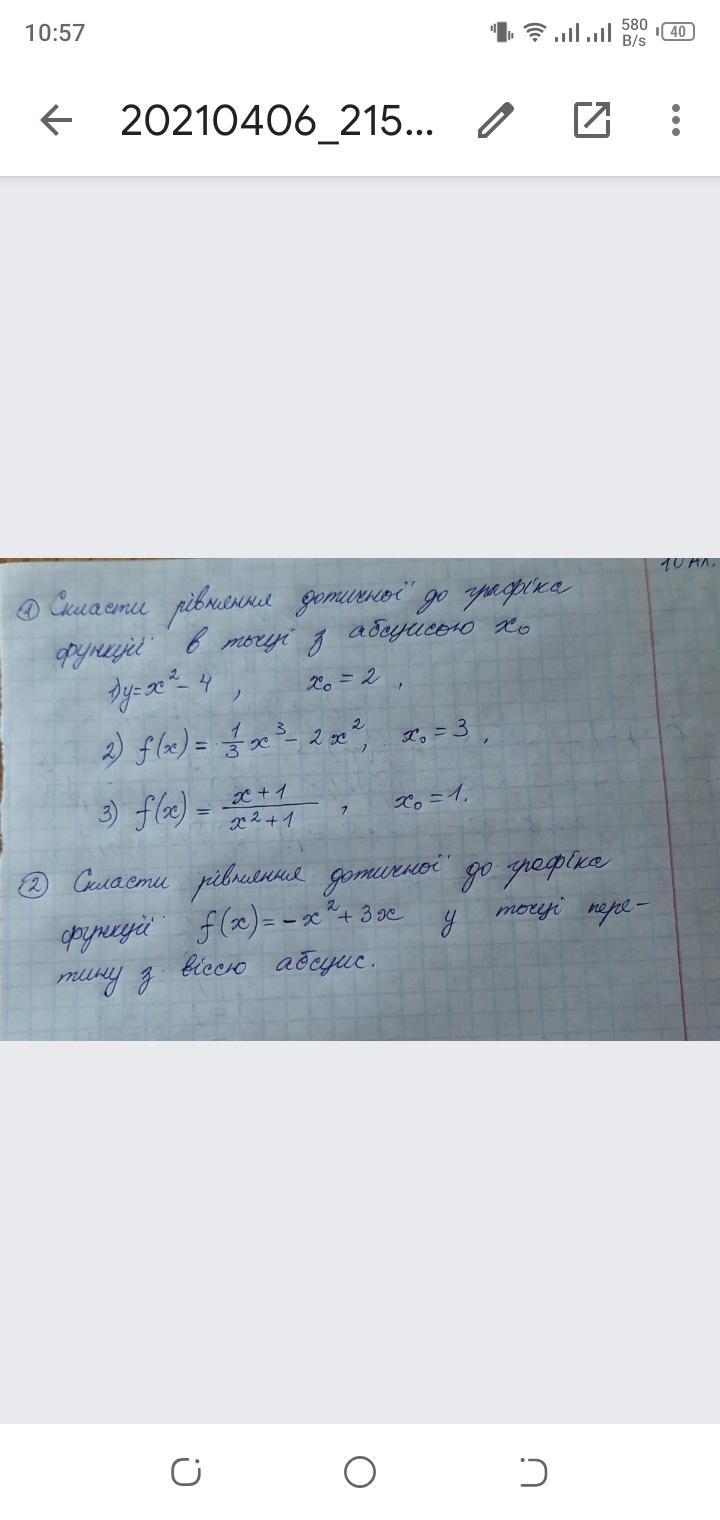 10:57
580 B/s
40
20210406_215...
10 кл.
① Скласти рівняння дотичної до графіка
функції в точці з абсцисою x₀
1) y=x²-4, x₀=2,
2) f(x)= 1/3 x³-2x², x₀=3,
3) f(x)= x+1/x²+1, x₀=1.
② Скласти рівняння дотичної до графіка
функції f(x)=-x²+3x у точці пере-
тину з віссю абсцис.